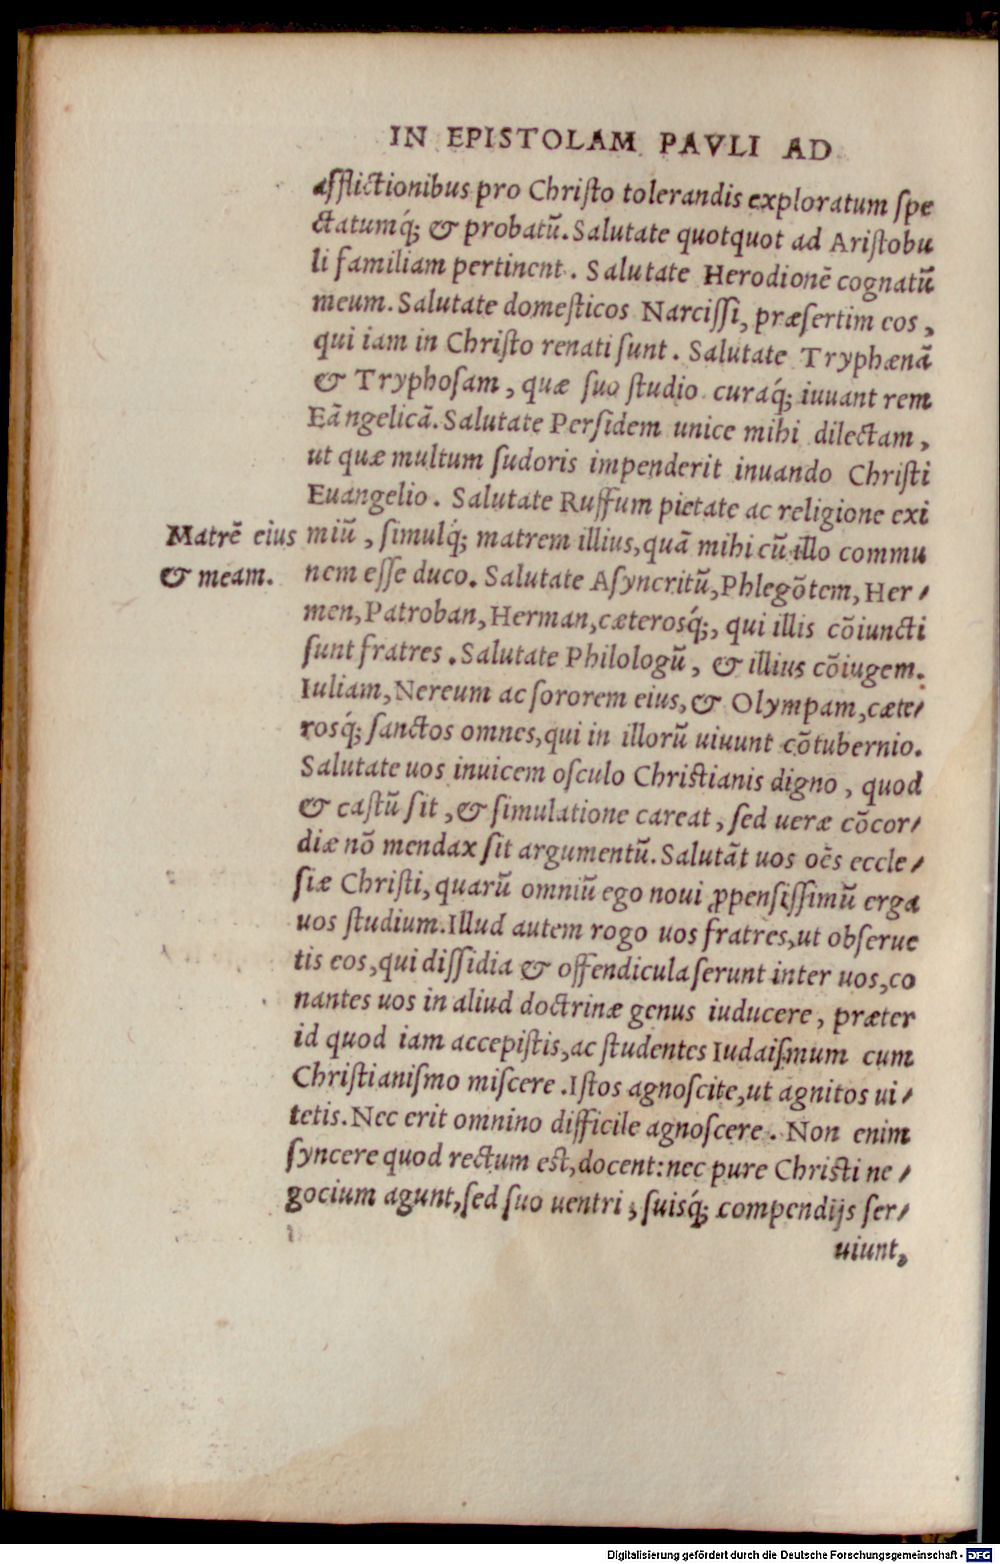 IN EPISTOLAM PAVLI AD
afflictionibus pro Chriſto tolerandis exploratum ſpe
ctatumq́; & probatū. Salutate quotquot ad Ariſtobu
li familiam pertinent. Salutate Herodionē cognatū
meum. Salutate domeſticos Narciſſi, præſertim eos,
qui iam in Chriſto renati ſunt. Salutate Tryphænā
& Tryphoſam, quæ ſuo ſtudio curaq́; iuuant rem
Eāngelicā. Salutate Perſidem unice mihi dilectam,
ut quæ multum ſudoris impenderit inuando Chriſti
Euangelio. Salutate Ruffum pietate ac religione exi
Matrē eius
& meam.
miū, ſimulq́; matrem illius, quā mihi cū illo commu
nem eſſe duco. Salutate Aſyncritū, Phlegōtem, Her⸗
men, Patroban, Herman, cæterosq́;, qui illis cōiuncti
ſunt fratres. Salutate Philologū, & illius cōiugem.
Iuliam, Nereum ac ſororem eius, & Olympam, cæte⸗
rosq́; ſanctos omnes, qui in illorū uiuunt cōtubernio.
Salutate uos inuicem oſculo Chriſtianis digno, quod
& caſtū ſit, & ſimulatione careat, ſed ueræ cōcor⸗
diæ nō mendax ſit argumentū. Salutāt uos oēs eccle⸗
ſiæ Chriſti, quarū omniū ego noui ꝓpenſiſſimū erga
uos ſtudium. Illud autem rogo uos fratres, ut obſerue
tis eos, qui diſſidia & offendicula ſerunt inter uos, co
nantes uos in aliud doctrinæ genus iuducere, præter
id quod iam accepiſtis, ac ſtudentes Iudaiſmum cum
Chriſtianiſmo miſcere. Iſtos agnoſcite, ut agnitos ui⸗
tetis. Nec erit omnino difficile agnoſcere. Non enim
ſyncere quod rectum eſt, docent: nec pure Chriſti ne⸗
gocium agunt, ſed ſuo uentri, ſuisq́; compendijs ſer⸗
uiunt,
Digitalisierung gefördert durch die Deutsche Forschungsgemeinschaft - DFG